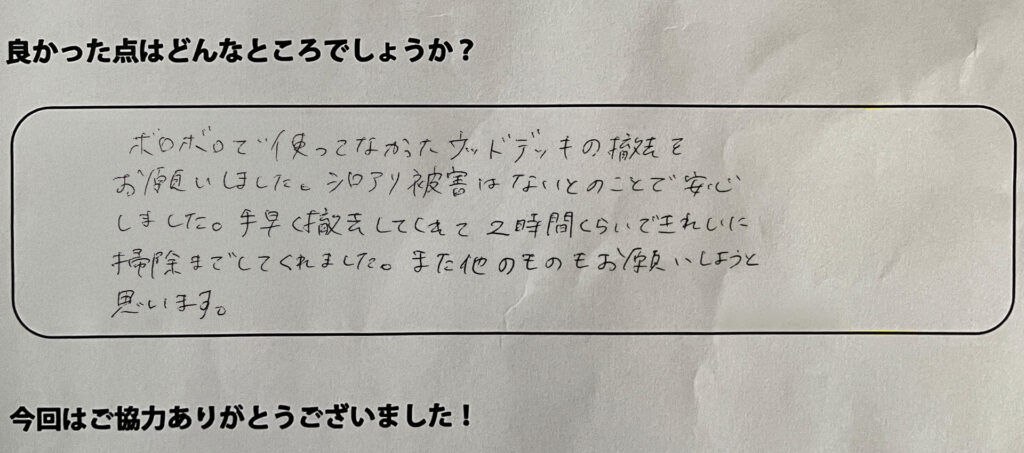 良かった点はどんなところでしょうか？
ボロボロで使ってなかったウッドデッキの撤去を
お願いしました。シロアリ被害はないとのことで安心
しました。手早く撤去してくれて2時間くらいできれいに
掃除までしてくれました。また他のものもお願いしようと
思います。
今回はご協力ありがとうございました！